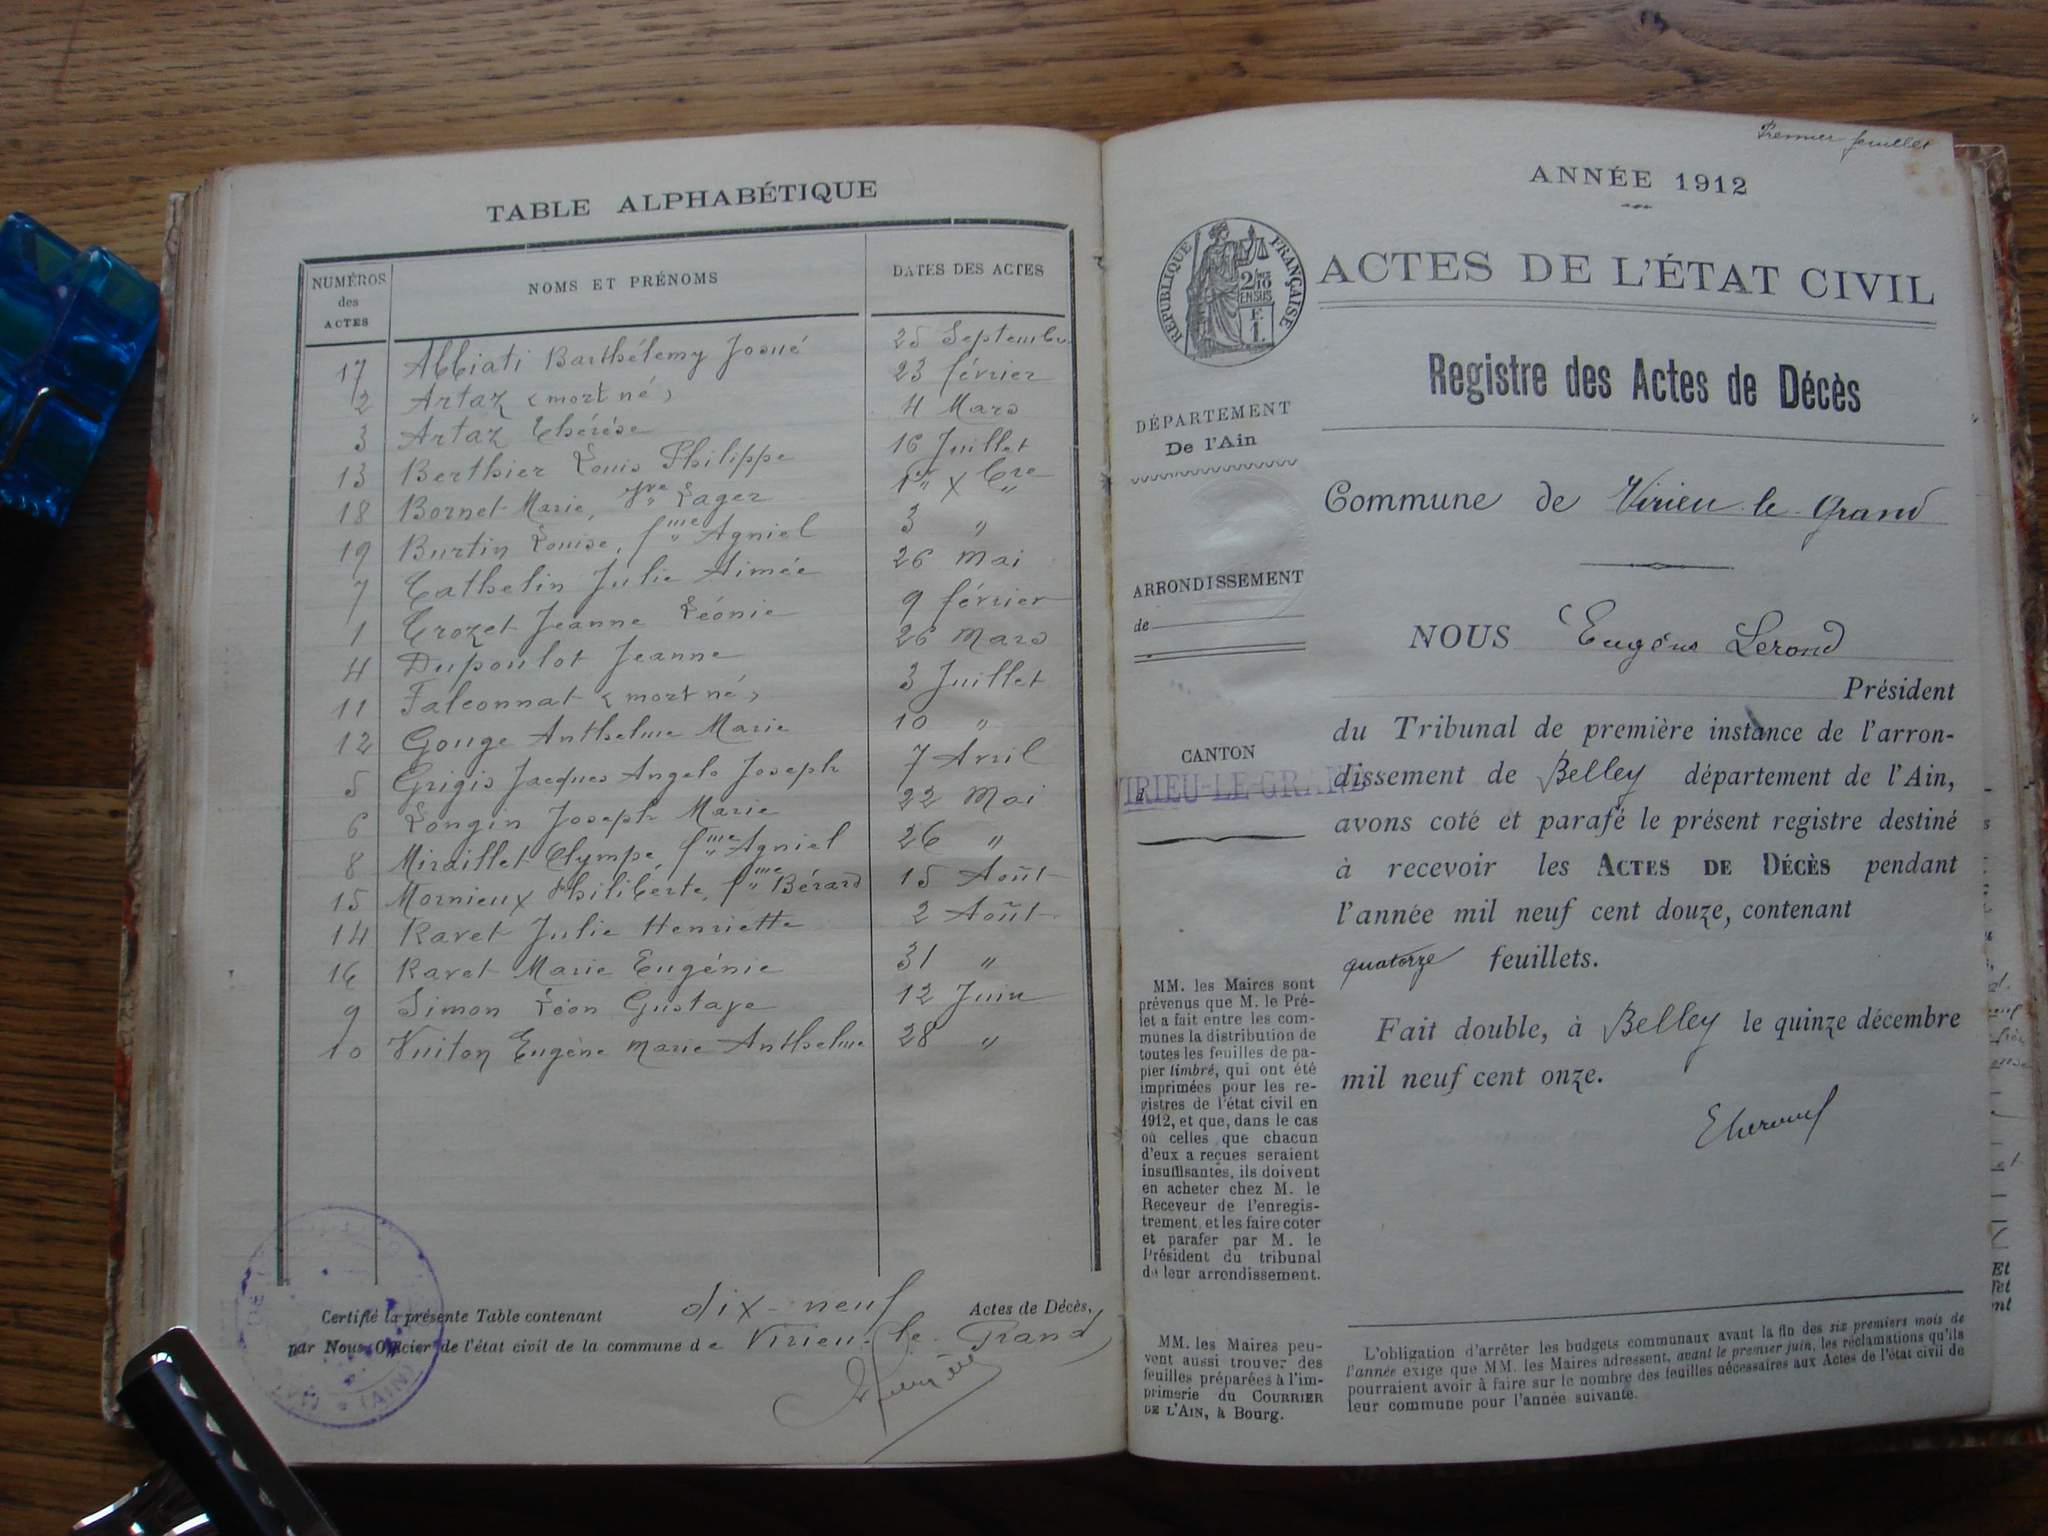 TABLE ALPHABÉTIQUE
NUMÉROS des ACTES
NOMS ET PRÉNOMS
DATES DES ACTES
17 Abbiati Barthélemy Josué 25 Septembre
2 Artaz (mort né) 23 février
3 Artaz Thérèse 4 Mars
13 Berthier Louis Philippe 16 Juillet
18 Bornet Marie, Vve Lager 1er Xbre
19 Burtin Louise, fme Agniel 3 "
7 Cathelin Julie Aimée 26 Mai
1 Crozet Jeanne Léonie 9 février
4 Dupoulot Jeanne 26 Mars
11 Falconnat (mort né) 3 Juillet
12 Gouge Anthelme Marie 10 "
5 Grigis Jacques Angelo Joseph 7 Avril
6 Longin Joseph Marie 22 Mai
8 Miraillet Olympe, fme Agniel 26 "
15 Mornieux Philiberte, fme Bérard 15 Août
14 Ravet Julie Henriette 2 Août
16 Ravet Marie Eugénie 31 "
9 Simon Léon Gustave 12 Juin
10 Vuiton Eugène Marie Anthelme 28 "
Certifié la présente Table contenant dix-neuf Actes de Décès,
par Nous Officier de l'état civil de la commune de Virieu-le-Grand
(AIN)
Premier feuillet
ANNÉE 1912
RÉPUBLIQUE FRANÇAISE
2/10
EN SUS
E.
1.
ACTES DE L'ÉTAT CIVIL
Registre des Actes de Décès
DÉPARTEMENT
De l'Ain
ARRONDISSEMENT
de
CANTON
d
VIRIEU-LE-GRAND
MM. les Maires sont
prévenus que M. le Pré-
let a fait entre les com-
munes la distribution de
toutes les feuilles de pa-
pier timbré, qui ont été
imprimées pour les re-
gistres de l'état civil en
1912, et que, dans le cas
où celles que chacun
d'eux a reçues seraient
insuffisantes, ils doivent
en acheter chez M. le
Receveur de l'enregis-
trement, et les faire coter
et parafer par M. le
Président du tribunal
de leur arrondissement.
MM. les Maires peu-
vent aussi trouver des
feuilles préparées à l'im-
primerie du COURRIER
DE L'AIN, à Bourg.
Commune de Virieu-le-Grand
NOUS Eugène Lerond
Président
du Tribunal de première instance de l'arron-
dissement de Belley département de l'Ain,
avons coté et parafé le présent registre destiné
à recevoir les ACTES DE DÉCÈS pendant
l'année mil neuf cent douze, contenant
quatorze feuillets.
Fait double, à Belley le quinze décembre
mil neuf cent onze.
L'obligation d'arrêter les budgets communaux avant la fin des six premiers mois de
l'année exige que MM. les Maires adressent, avant le premier juin, les réclamations qu'ils
pourraient avoir à faire sur le nombre des feuilles nécessaires aux Actes de l'état civil de
leur commune pour l'année suivante.